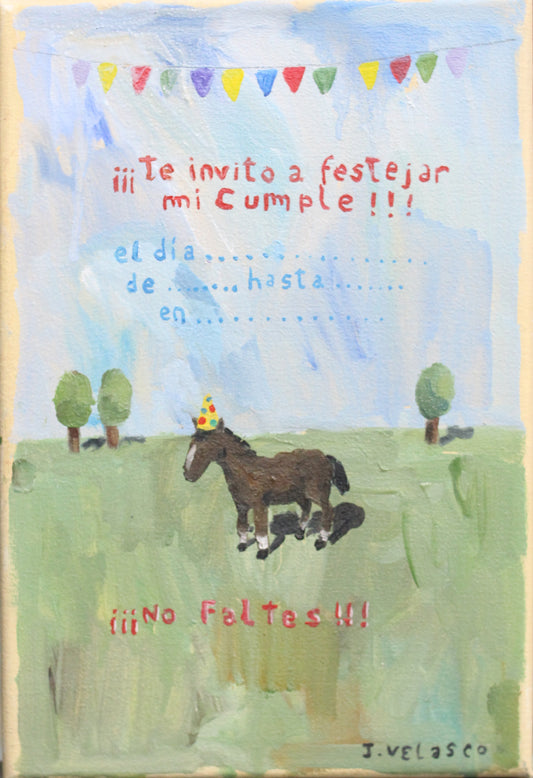 ¡¡¡Te invito a festejar
mi Cumple!!!
el día..................
de ........ hasta .......
en ...............
¡¡¡No Faltes!!!
J. Velasco